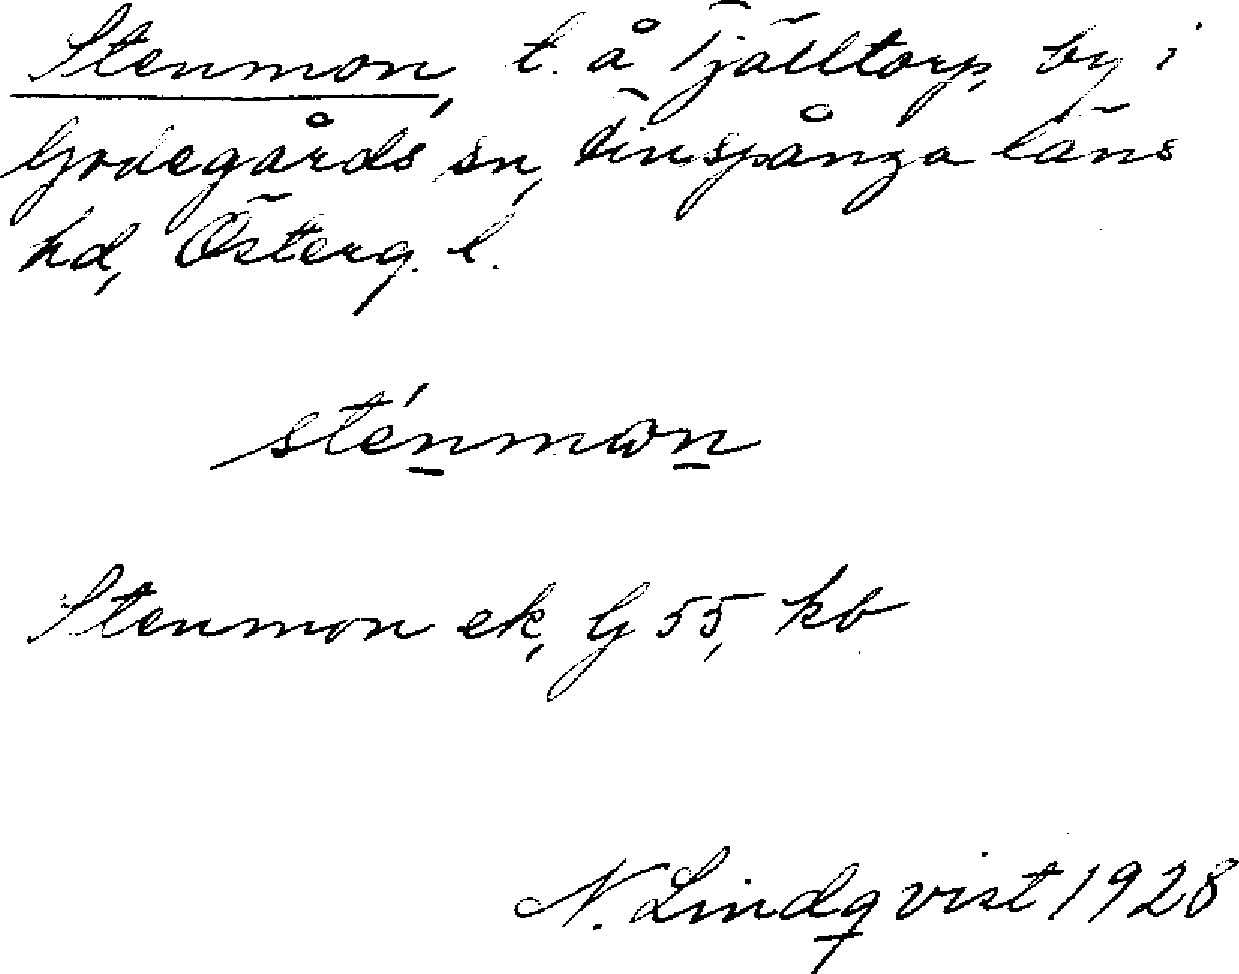 Stenmon, t. å Tjälltorp, by i
Godegårds sn, Finspånga läns
hd, Österg. l.
sténmωn
Stenmon ek, G 55, kb
N. Lindqvist 1928